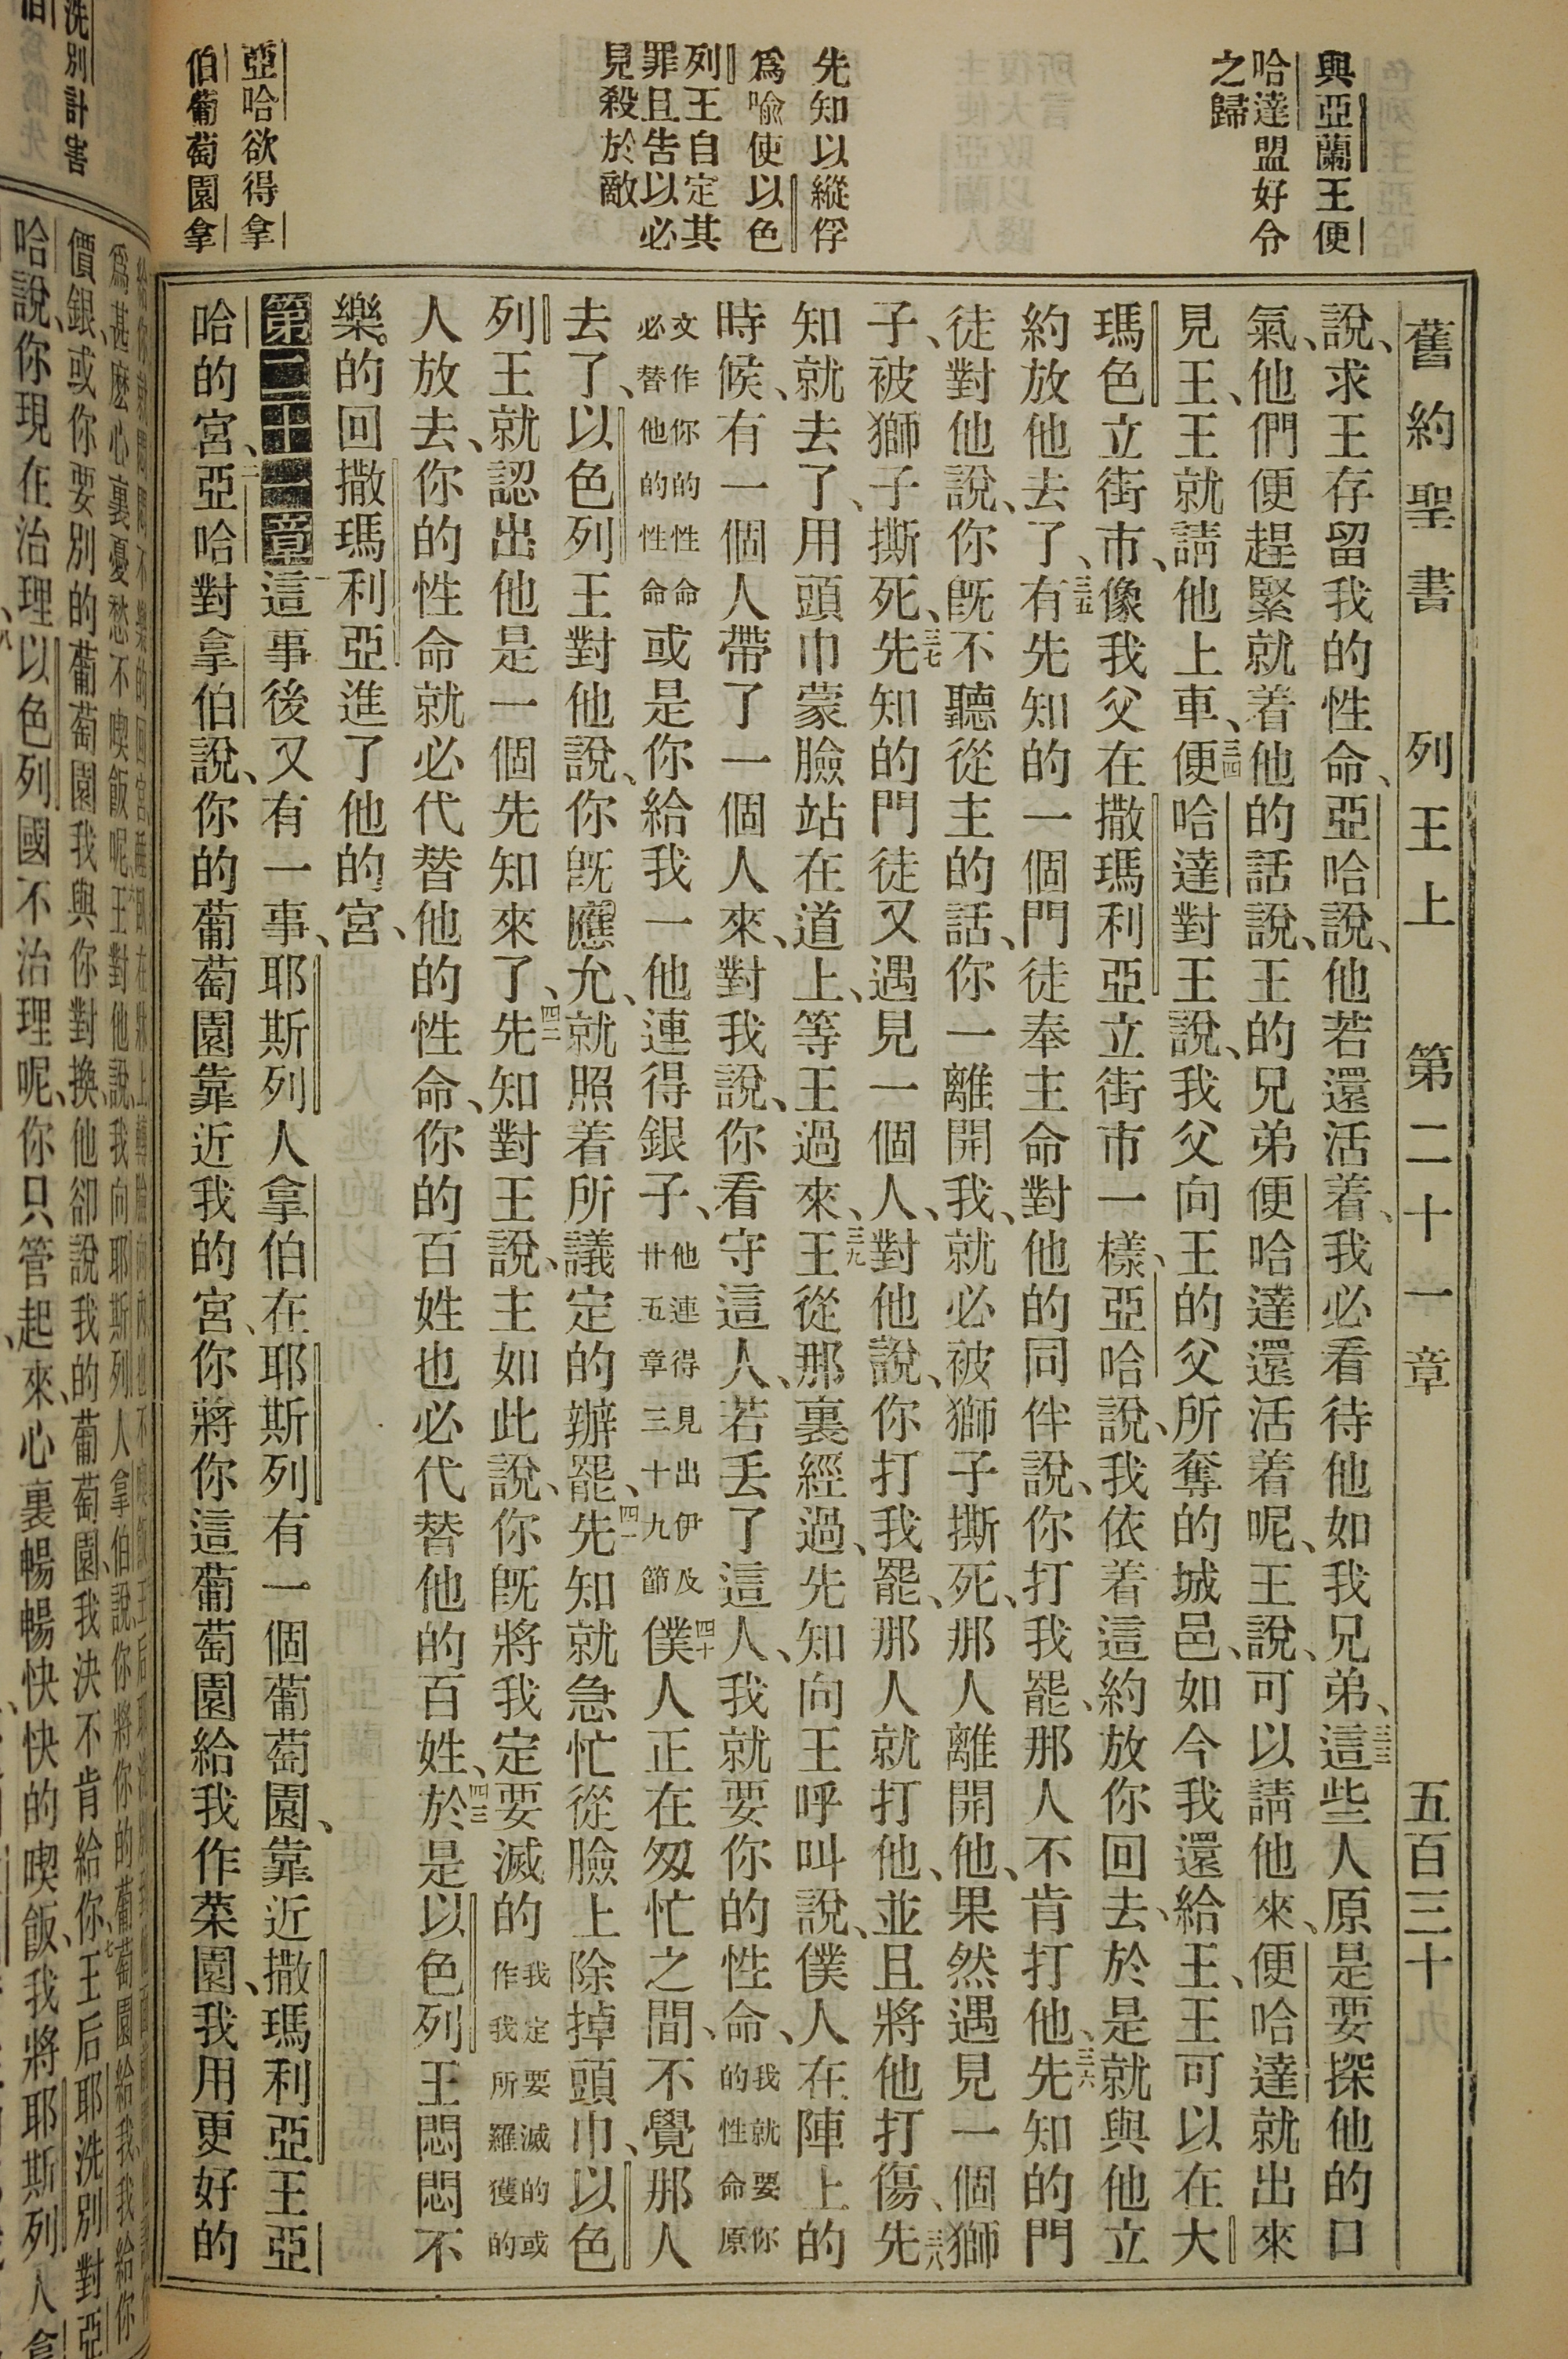 舊約聖書　列王上　第二十一章　五百三十
與亞蘭王便
哈達盟好令
之歸
先知以縱俘
爲喻使以色
列王自定其
罪且告以必
見殺於敵
亞哈欲得拿
伯葡萄園拿
說、求王存留我的性命、亞哈說、他若還活着、我必看待他如我兄弟、三三這些人原是要探他的口
氣、他們便趕緊就着他的話說、王的兄弟便哈達還活着呢、王說、可以請他來、便哈達就出來
見王、王就請他上車、三四便哈達對王說、我父向王的父所奪的城邑、如今我還給王、王可以在大
瑪色立街市、像我父在撒瑪利亞立街市一樣、亞哈說、我依着這約放你回去、於是就與他立
約放他去了、三五有先知的一個門徒奉主命對他的同伴說、你打我罷、那人不肯打他、三六先知的門
徒對他說、你旣不聽從主的話、你一離開我、就必被獅子撕死、那人離開他、果然遇見一個獅
子、被獅子撕死、三七先知的門徒又遇見一個人、對他說、你打我罷、那人就打他、並且將他打傷、三八先
知就去了、用頭巾蒙臉站在道上、等王過來、三九王從那裏經過、先知向王呼叫說、僕人在陣上的
時候、有一個人帶了一個人來、對我說、你看守這人、若丟了這人、我就要你的性命、我就要你的性命原
文作你的性命必替他的性命或是你給我一他連得銀子、他連得見出伊及廿五章三十九節四十僕人正在匆忙之間、不覺那人
去了、以色列王對他說、你旣應允、就照着所議定的辦罷、四一先知就急忙從臉上除掉頭巾、以色
列王就認出他是一個先知來了、四二先知對王說、主如此說、你旣將我定要滅的我定要滅的或作我所羅獲的
人放去、你的性命就必代替他的性命、你的百姓也必代替他的百姓、四三於是以色列王悶悶不
樂。的回撒瑪利亞進了他的宮、
第二十一章一這事後又有一事、耶斯列人拿伯在耶斯列有一個葡萄園、靠近撒瑪利亞王亞
哈的宮、二亞哈對拿伯說、你的葡萄園靠近我的宮、你將你這葡萄園給我作菜園、我用更好的
洗別計害
爲甚麼心裏憂愁不喫飯呢、王對他說、我向耶斯列人拿伯說、你將你的葡萄園給我、我給你
價銀、或你要別的葡萄園我與你對換、他卻說我的葡萄園、我決不肯給你、七王后耶洗別對亞
哈說、你現在治理以色列國不治理呢、你只管起來、心裏暢暢快快的喫飯、我將耶斯列人拿